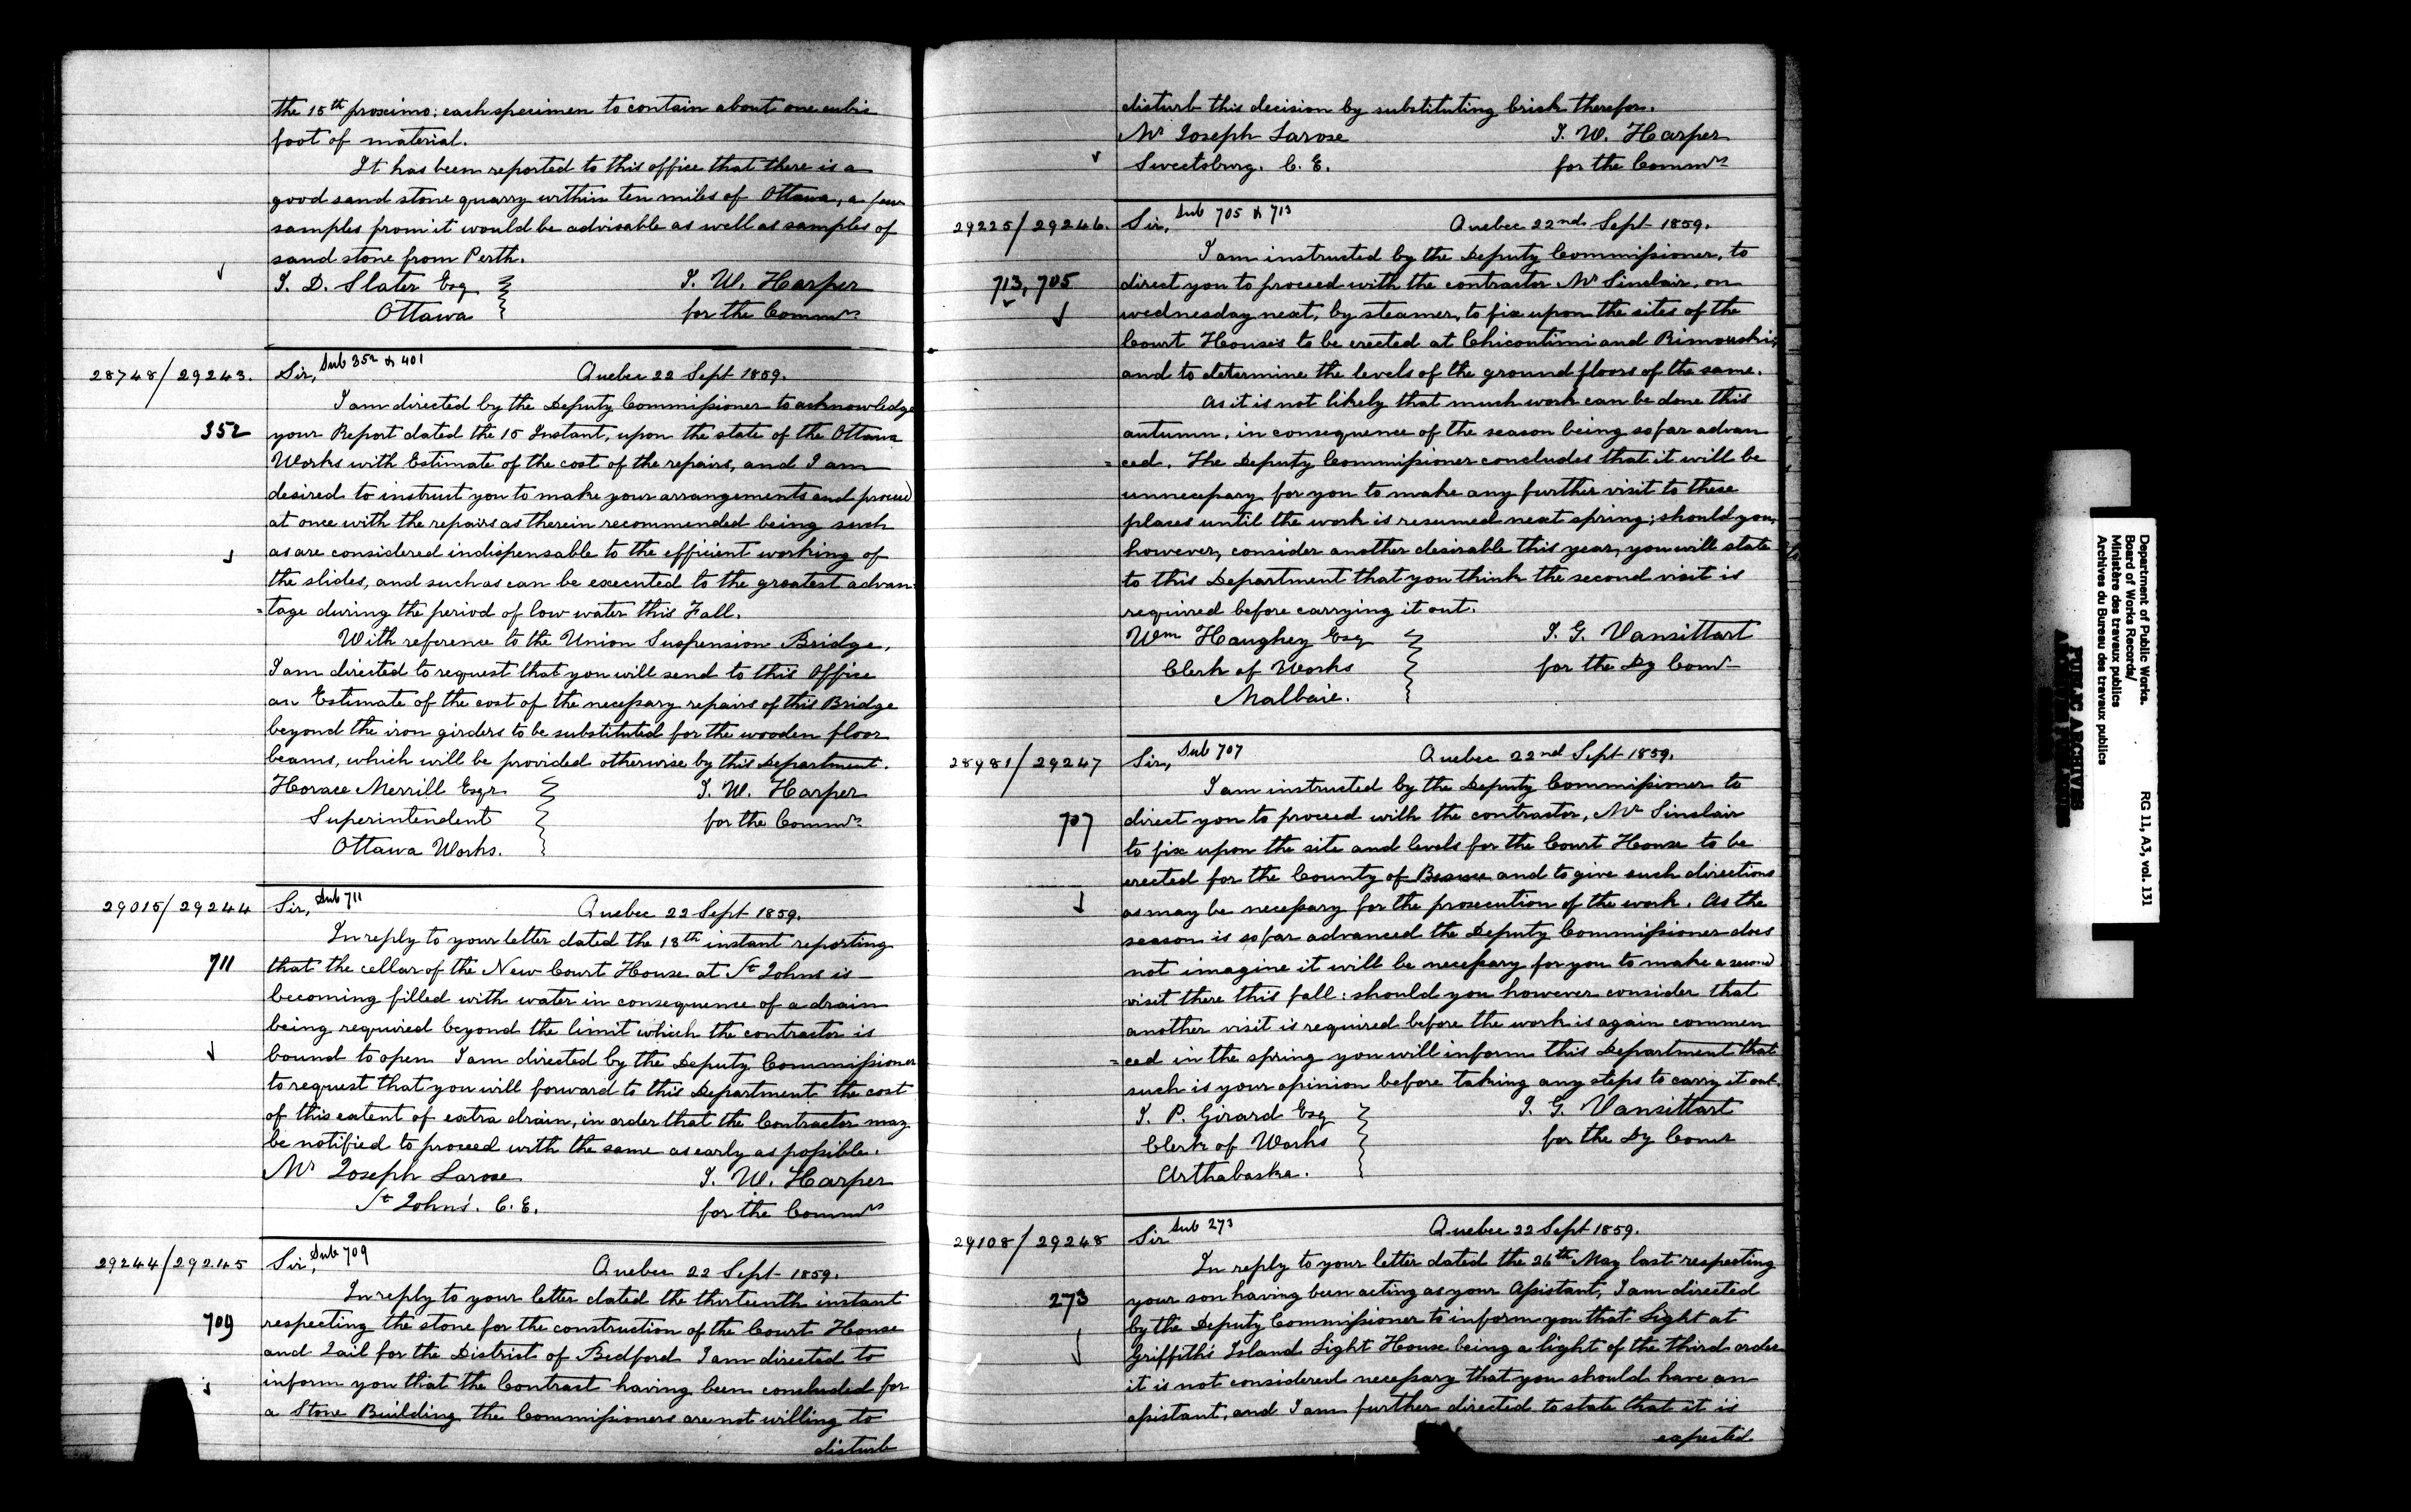 the 15th proximo: each specimen to contain about one cubic
foot of material.
It has been reported to this office that there is a
good sand stone quarry within ten miles of Ottawa, a few
samples from it would be advisable as well as samples of
sand stone from Perth.
J. D. Slater Esq J. W. Harper
Ottawa for the Commrs
28748/29243. Sir, Sub 352 & 401 Quebec 22 Sept 1859.
I am directed by the Deputy Commissioner to acknowledge
352 your Report dated the 15 Instant, upon the state of the Ottawa
Works with Estimate of the cost of the repairs, and I am
desired to instruct you to make your arrangements and proceed
at once with the repairs as therein recommended being such
as are considered indispensable to the efficient working of
the slides, and such as can be executed to the greatest advan
=tage during the period of low water this Fall.
With reference to the Union Suspension Bridge,
I am directed to request that you will send to this Office
an Estimate of the cost of the necessary repairs of this Bridge
beyond the iron girders to be substituted for the wooden floor
beams, which will be provided otherwise by this Department.
Horace Merrill Esqr J. W. Harper
Superintendent for the Commrs
Ottawa Works.
29015/29244 Sir, Sub 711 Quebec 22 Sept 1859.
In reply to your letter dated the 18th instant reporting
711 that the cellar of the New Court House at St Johns is
becoming filled with water in consequence of a drain
being required beyond the limit which the contractor is
bound to open I am directed by the Deputy Commissioner
to request that you will forward to this Department the cost
of this extent of extra drain, in order that the Contractor may
be notified to proceed with the same as early as possible.
Mr Joseph Larose J. W. Harper
St Johns'. C. E. for the Commrs
29244/29245 Sir, Sub 709 Quebec 22 Sept 1859.
In reply to your letter dated the thirteenth instant
709 respecting the stone for the construction of the Court House
and Jail for the District of Bedford I am directed to
inform you that the Contract having been concluded for
a Stone Building the Commissioners are not willing to
disturb
disturb this decision by substituting brick therefor.
Mr Joseph Larose J. W. Harper
Sweetsburg. C. E. for the Commrs
29225/29246. Sir, Sub 705 & 713 Quebec 22nd Sept 1859.
I am instructed by the Deputy Commissioner, to
713, 705 direct you to proceed with the contractor Mr Sinclair, on
wednesday next, by steamer, to fix upon the sites of the
Court Houses to be erected at Chicoutimi and Rimouski,
and to determine the levels of the ground floors of the same.
As it is not likely that much work can be done this
autumn, in consequence of the season being so far advan
=ced. The Deputy Commissioner concludes that it will be
unnecessary for you to make any further visit to these
places until the work is resumed next spring; should you,
however, consider another desirable this year, you will state
to this Department that you think the second visit is
required before carrying it out.
Wm Haughey Esq J. G. Vansittart
Clerk of Works for the Dy Comr
Malbaie.
28981/29247 Sir, Sub 707 Quebec 22nd Sept 1859.
I am instructed by the Deputy Commissioner to
707 direct you to proceed with the contractor, Mr Sinclair
to fix upon the site and levels for the Court House to be
erected for the County of Beauce and to give such directions
as may be necessary for the prosecution of the work. As the
season is so far advanced the Deputy Commissioner does
not imagine it will be necessary for you to make a second
visit there this fall: should you however consider that
another visit is required before the work is again commen
=ced in the spring you will inform this Department that
such is your opinion before taking any steps to carry it out.
J. P. Girard Esq J. G. Vansittart
Clerk of Works for the Dy Comr
Arthabaska.
29108/29248 Sir Sub 273 Quebec 22 Sept 1859.
In reply to your letter dated the 26th May last respecting
273 your son having been acting as your Assistant, I am directed
by the Deputy Commissioner to inform you that Light at
Griffith's Island Light House being a light of the third order
it is not considered necessary that you should have an
assistant, and I am further directed to state that it is
expected
Department of Public Works.
Board of Works Records/
Ministère des travaux publics
Archives du Bureau des travaux publics
RG 11, A3, vol. 131
PUBLIC ARCHIVES